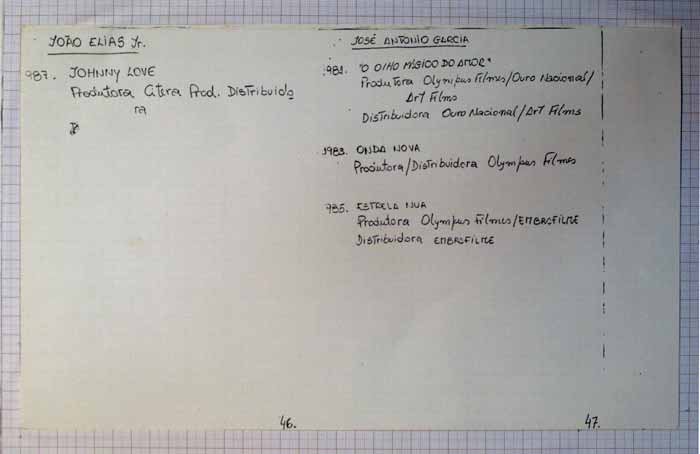 JOÃO ELIAS Jr.
987. JOHNNY LOVE
Produtora Cítera Prod. Distribuido
ra
46.
JOSÉ ANTONIO GARCIA
1981. "O OLHO MÁGICO DO AMOR"
Produtora Olympus Filmes/Ouro Nacional/
Art Films
Distribuidora Ouro Nacional/Art Films
1983. ONDA NOVA
Produtora/Distribuidora Olympus Filmes
985. ESTRELA NUA
Produtora Olympus Filmes/EMBRAFILME
Distribuidora EMBRAFILME
47.